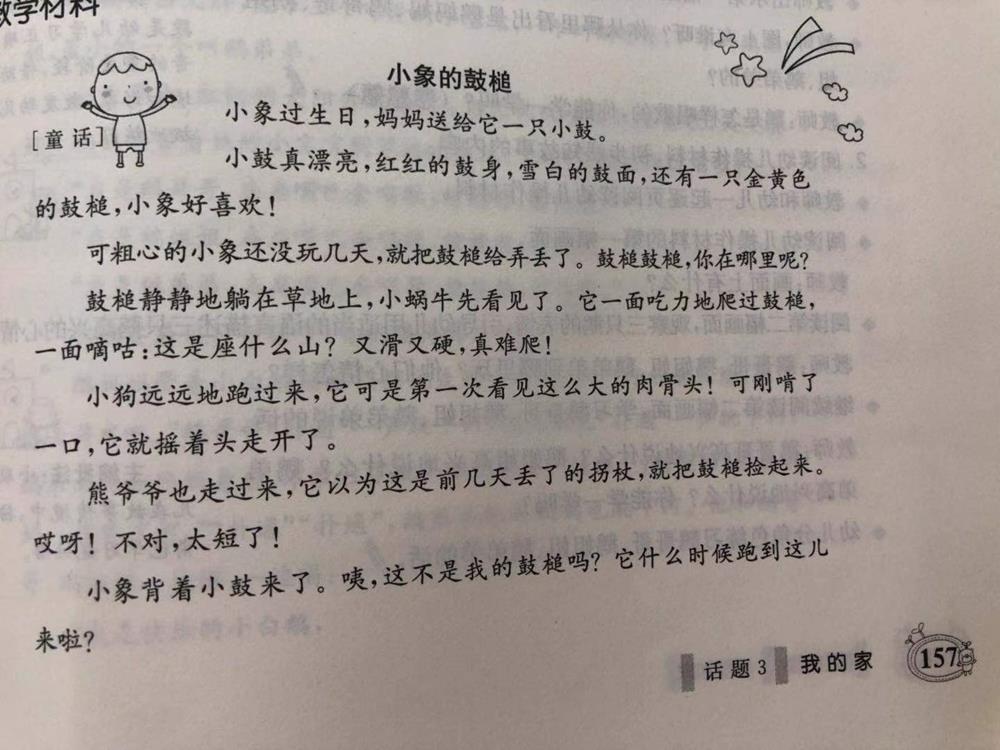 教学材料
小象的鼓槌
[童话]
小象过生日，妈妈送给它一只小鼓。
小鼓真漂亮，红红的鼓身，雪白的鼓面，还有一只金黄色
的鼓槌，小象好喜欢！
可粗心的小象还没玩几天，就把鼓槌给弄丢了。鼓槌鼓槌，你在哪里呢？
鼓槌静静地躺在草地上，小蜗牛先看见了。它一面吃力地爬过鼓槌，
一面嘀咕：这是座什么山？又滑又硬，真难爬！
小狗远远地跑过来，它可是第一次看见这么大的肉骨头！可刚啃了
一口，它就摇着头走开了。
熊爷爷也走过来，它以为这是前几天丢了的拐杖，就把鼓槌捡起来。
哎呀！不对，太短了！
小象背着小鼓来了。咦，这不是我的鼓槌吗？它什么时候跑到这儿
来啦？
话题3 我的家 157